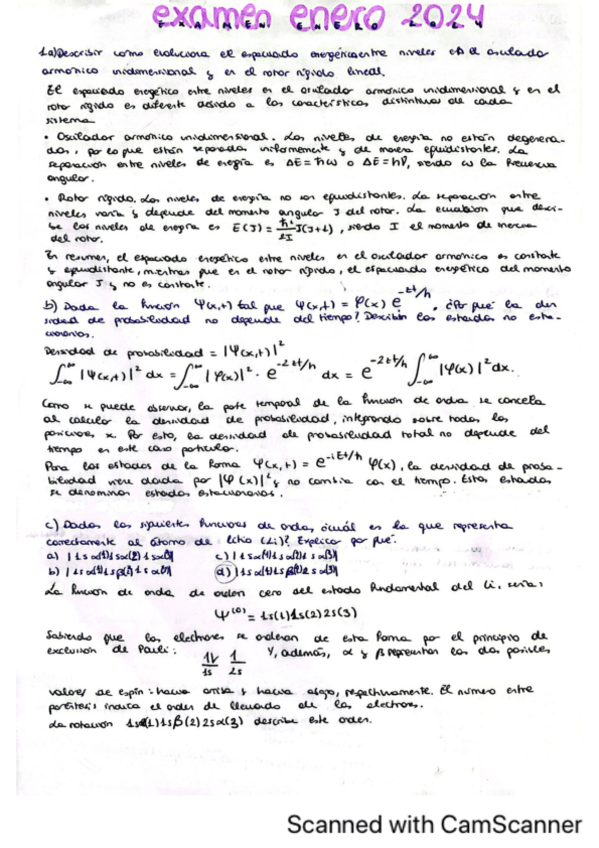 examen enero 2024
EXAMEN ENERO 2024
1.a) Describir como evoluciona el espaciado energético entre niveles en el oscilador
armónico unidimensional y en el rotor rígido lineal.
El espaciado energético entre niveles en el oscilador armónico unidimensional y en el
rotor rígido es diferente debido a las características distintivas de cada
sistema
• Oscilador armónico unidimensional. Los niveles de energía no están degenera-
dos, por lo que están separados uniformemente y de manera equidistantes. La
separación entre niveles de energía es ΔE = ħω o ΔE = hν, siendo ω la frecuencia
angular.
• Rotor rígido. Los niveles de energía no son equidistantes. La separación entre
niveles varía y depende del momento angular J del rotor. La ecuación que descri-
be los niveles de energía es E(J) = ħ²/2I J(J+1), siendo I el momento de inercia
del rotor.
En resumen, el espaciado energético entre niveles en el oscilador armónico es constante
y equidistante, mientras que en el rotor rígido, el espaciado energético del momento
angular J y no es constante.
b) Dada la función Ψ(x,t) tal que Ψ(x,t) = φ(x) e^-Et/ħ, ¿Por qué la den
sidad de probabilidad no depende del tiempo? Describir los estados no esta-
cionarios.
Densidad de probabilidad = |Ψ(x,t)|²
∫-∞^∞ |Ψ(x,t)|² dx = ∫-∞^∞ |φ(x)|² · e^-2Et/ħ dx = e^-2Et/ħ ∫-∞^∞ |φ(x)|² dx.
Como se puede observar, la parte temporal de la función de onda se cancela
al calcular la densidad de probabilidad, integrando sobre todas las
posiciones x. Por esto, la densidad de probabilidad total no depende del
tiempo en este caso particular.
Para los estados de la forma Ψ(x,t) = e^-iEt/ħ φ(x), la densidad de proba-
bilidad viene dada por |Ψ(x)|² y no cambia con el tiempo. Estos estados
se denominan estados estacionarios.
c) Dadas las siguientes funciones de onda, ¿cuál es la que representa
correctamente al átomo de Litio (Li)? Explicar por qué.
a) |1sα(1)1sα(2)1sα(3)| c) |1sα(1)1sα(2)1sβ(3)|
b) |1sα(1)1sβ(2)1sα(3)| d) |1sα(1)1sβ(2)2sα(3)|
La función de onda de orden cero del estado fundamental del Li, sería:
Ψ⁽⁰⁾ = 1s(1)1s(2)2s(3)
Sabiendo que los electrones se ordenan de esta forma por el principio de
exclusión de Pauli: 1s 2s Y, además, α y β representan los dos posibles
valores de espín: hacia arriba y hacia abajo, respectivamente. El número entre
paréntesis indica el orden de llenado de los electrones.
La notación 1sα(1)1sβ(2)2sα(3) describe este orden.
Scanned with CamScanner